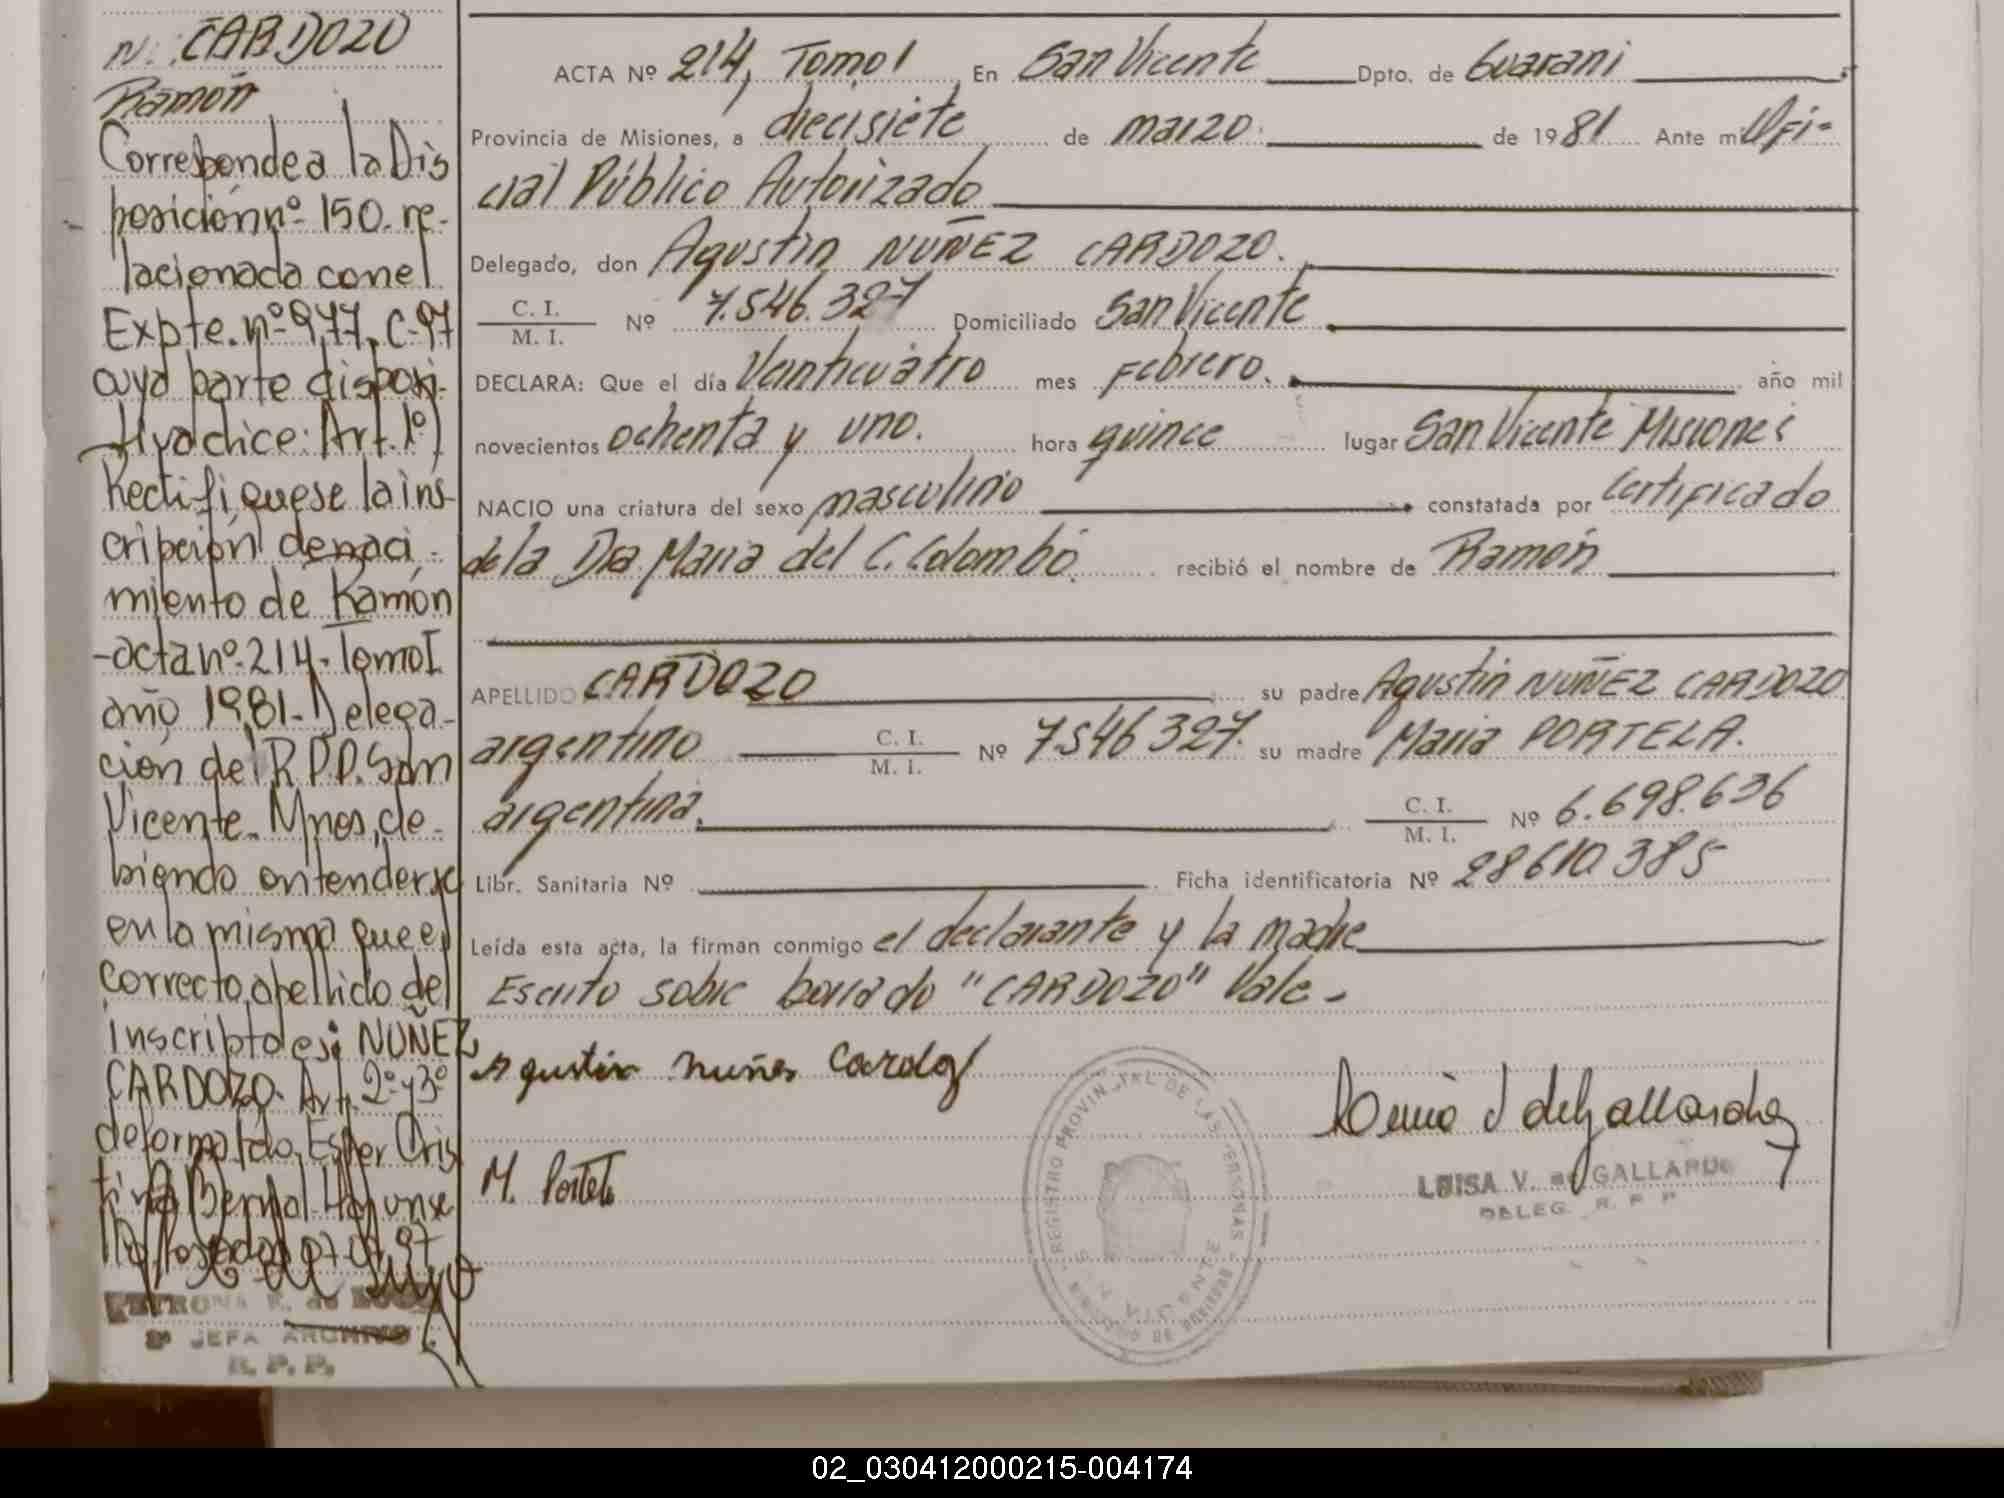 N: CARDOZO
Ramón
Corresponde a la Dis
posición nº 150. re-
lacionada con el
Expte. nº 977. C-97
cuya parte disposi-
tiva dice: Art. 1º)
Rectifiquese la ins-
cripción de naci-
miento de Ramón
-acta nº 214- Tomo I
año 1981- Delega-
ción del R.P.P. San
Vicente- Mnes, de-
biendo entenderse
en la misma que el
correcto apellido del
inscripto es: NUÑEZ
CARDOZO. Art. 2º y 3º
de forma fdo. Ester Cris
tina Bernal
97
PETRONA E. de
2ª JEFA ARCHIVO
R. P. P.
ACTA Nº 214, Tomo I En San Vicente Dpto. de Guarani
Provincia de Misiones, a diecisiete de marzo. de 1981 Ante mi Ofi-
cial Público Autorizado
Delegado, don Agustin NUÑEZ CARDOZO.
C. I.
M. I. Nº 7.546.327 Domiciliado San Vicente
DECLARA: Que el día Veinticuatro mes Febrero. año mil
novecientos ochenta y uno. hora quince lugar San Vicente Misiones
NACIO una criatura del sexo masculino constatada por Certificado
de la Dra. Maria del C. Colombo. recibió el nombre de Ramón
APELLIDO CARDOZO su padre Agustin NUÑEZ CARDOZO
argentino C. I.
M. I. Nº 7.546 327. su madre Maria PORTELA.
argentina. C. I.
M. I. Nº 6.698.636
Libr. Sanitaria Nº Ficha identificatoria Nº 28610 385
Leída esta acta, la firman conmigo el declarante y la madre
Escrito sobre borrado "CARDOZO" Vale-
Agustin nuñes Cardoz
M. Portela
REGISTRO PROVINCIAL DE LAS PERSONAS
LUISA V. de GALLARDO
DELEG. R. P. P.
02_030412000215-004174